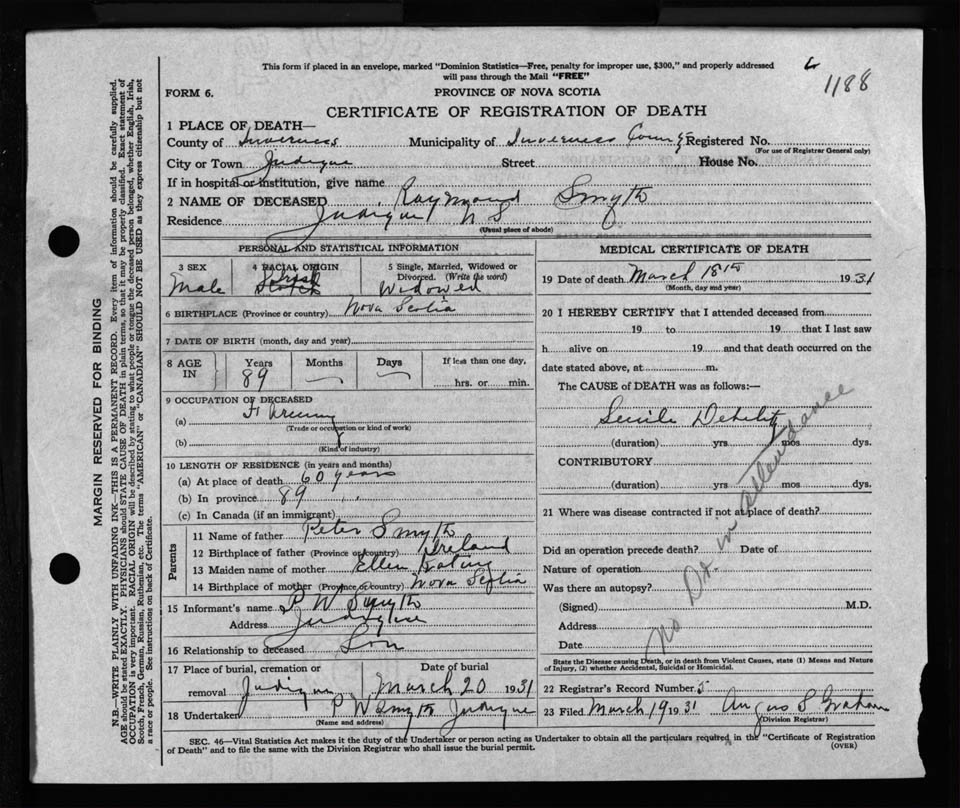 This form if placed in an envelope, marked "Dominion Statistics—Free, penalty for improper use, $300," and properly addressed
will pass through the Mail "FREE"
1188
FORM 6.
PROVINCE OF NOVA SCOTIA
CERTIFICATE OF REGISTRATION OF DEATH
1 PLACE OF DEATH—
County of Inverness Municipality of Inverness County Registered No.
(For use of Registrar General only)
City or Town Judique Street House No.
If in hospital or institution, give name
2 NAME OF DECEASED Raymond Smyth
Residence Judique N S
(Usual place of abode)
PERSONAL AND STATISTICAL INFORMATION
3 SEX
Male
4 RACIAL ORIGIN
Irish
Scotch
5 Single, Married, Widowed or
Divorced. (Write the word)
Widowed
6 BIRTHPLACE (Province or country) Nova Scotia
7 DATE OF BIRTH (month, day and year)
8 AGE
IN
Years
89
Months
Days
If less than one day,
hrs. or min.
9 OCCUPATION OF DECEASED
(a) Farming
(Trade or occupation or kind of work)
(b)
(Kind of industry)
10 LENGTH OF RESIDENCE (in years and months)
(a) At place of death 60 years
(b) In province 89 " "
(c) In Canada (if an immigrant)
Parents
11 Name of father Peter Smyth
12 Birthplace of father (Province or country) Ireland
13 Maiden name of mother Ellen Keating
14 Birthplace of mother (Province or country) Nova Scotia
15 Informant's name P W Smyth
Address Judique
16 Relationship to deceased Son
17 Place of burial, cremation or Date of burial
removal Judique March 20 1931
18 Undertaker P W Smyth Judique
(Name and address)
MEDICAL CERTIFICATE OF DEATH
19 Date of death March 18th 1931
(Month, day and year)
20 I HEREBY CERTIFY that I attended deceased from
19 to 19 that I last saw
h alive on 19 and that death occurred on the
date stated above, at m.
The CAUSE of DEATH was as follows:—
Senile Debility
(duration) yrs mos dys.
CONTRIBUTORY
(duration) yrs mos dys.
No Dr. in attendance
21 Where was disease contracted if not at place of death?
Did an operation precede death? Date of
Nature of operation
Was there an autopsy?
(Signed) M.D.
Address
Date
State the Disease causing Death, or in death from Violent Causes, state (1) Means and Nature
of Injury, (2) whether Accidental, Suicidal or Homicidal.
22 Registrar's Record Number 5
23 Filed March 19 1931 Angus S Graham
(Division Registrar)
SEC. 46—Vital Statistics Act makes it the duty of the Undertaker or person acting as Undertaker to obtain all the particulars required in the "Certificate of Registration
of Death" and to file the same with the Division Registrar who shall issue the burial permit.
(OVER)
MARGIN RESERVED FOR BINDING
N.B.—WRITE PLAINLY WITH UNFADING INK—THIS IS A PERMANENT RECORD. Every item of information should be carefully supplied.
AGE should be stated EXACTLY. PHYSICIANS should STATE CAUSE OF DEATH in plain terms, so that it may be properly classified. Exact statement of
OCCUPATION is very important. RACIAL ORIGIN will be described by stating to what people or tongue the deceased person belonged, whether English, Irish,
Scotch, French, German, Russian, Ruthenian, etc. The terms "AMERICAN" or "CANADIAN" SHOULD NOT BE USED as they express citizenship but not
a race or people. See instructions on back of Certificate.